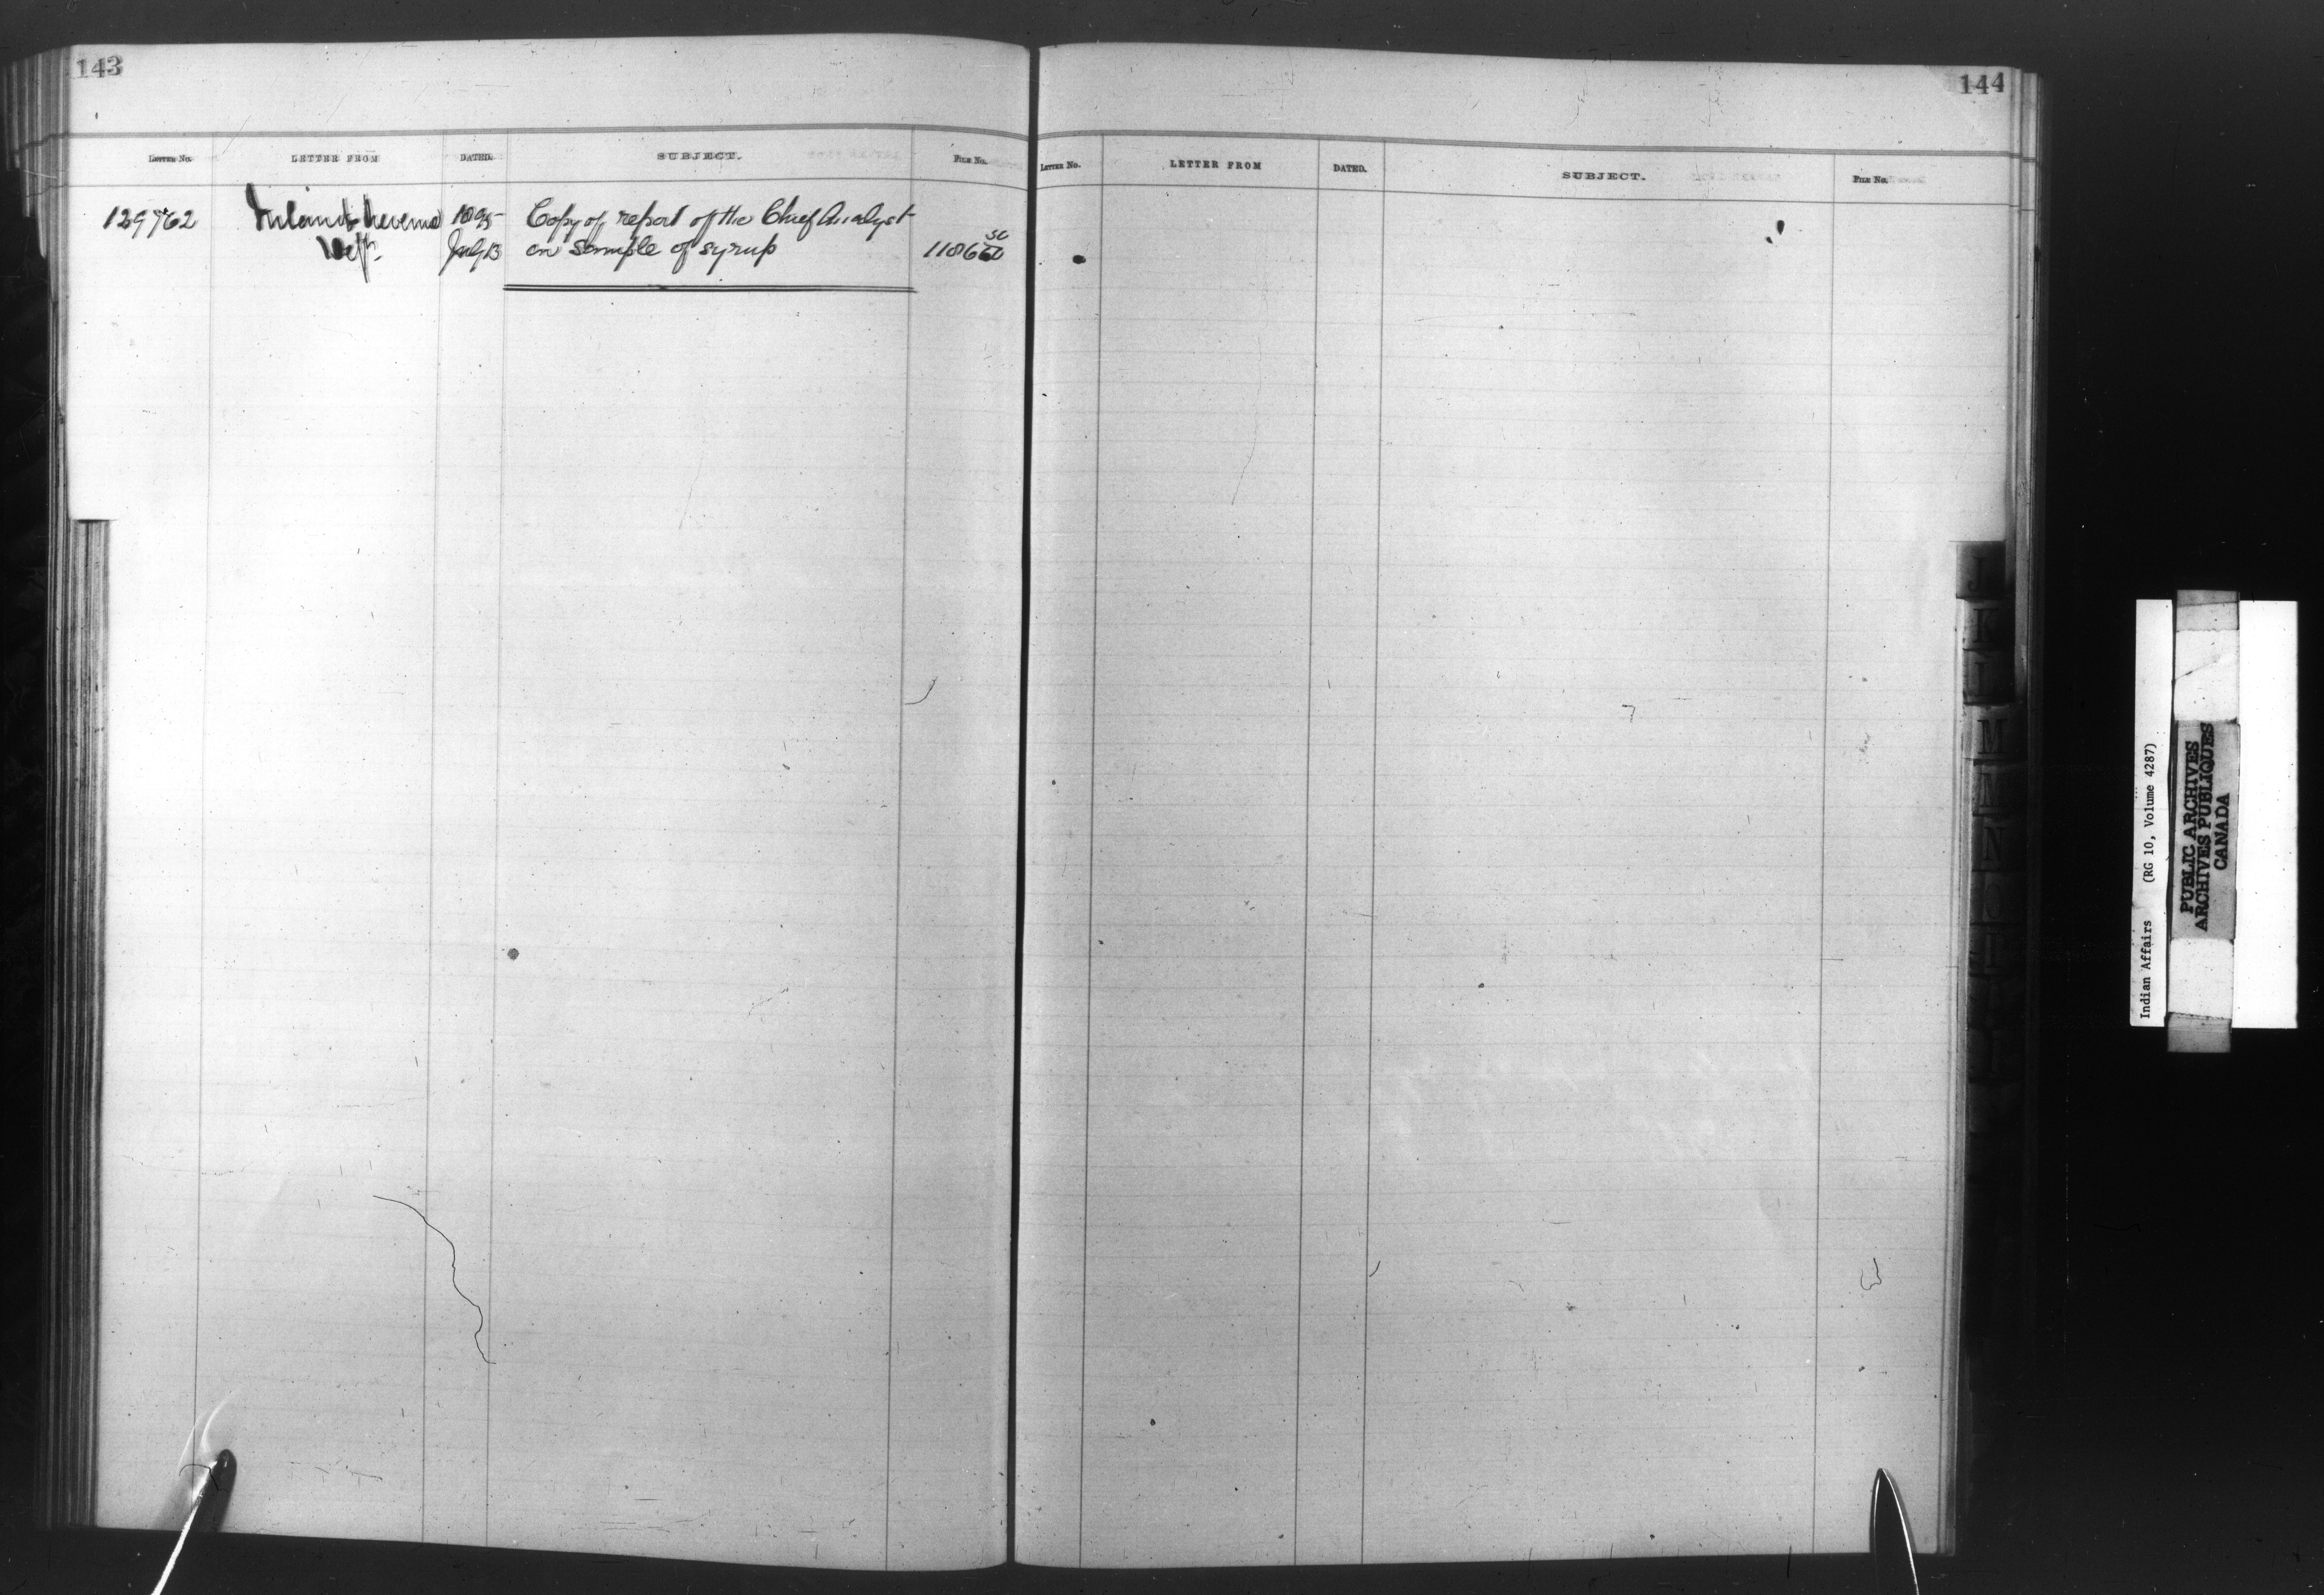 143
LETTER No. LETTER FROM DATED. SUBJECT. FILE No.
129762 Inland Revenue 1895 Copy of report of the Chief Analyst
Dept. July 13 on sample of syrup
144
LETTER No. LETTER FROM DATED. SUBJECT. FILE No.
J
K
L
M
N
O
Indian Affairs (RG 10, Volume 4287)
PUBLIC ARCHIVES
ARCHIVES PUBLIQUES
CANADA